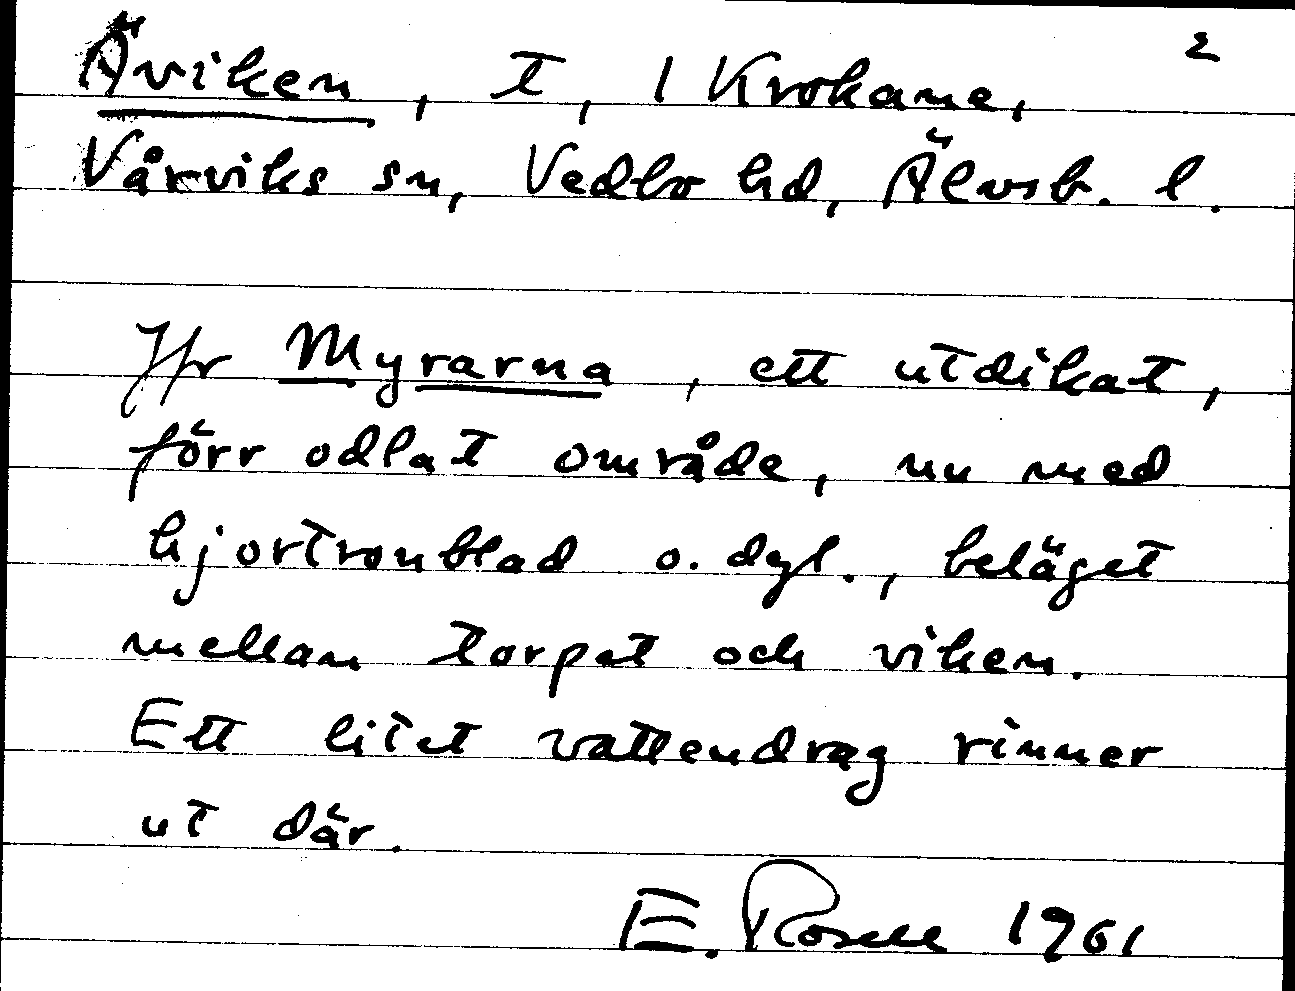 2
Äviken, t, 1 Krokane,
Vårviks sn, Vedbo hd, Älvsb. l.
Jfr Myrarna, ett utdikat,
förr odlat område, nu med
hjortronblad o. dyl., beläget
mellan torpet och viken.
Ett litet vattendrag rinner
ut där.
E. Rosell 1961